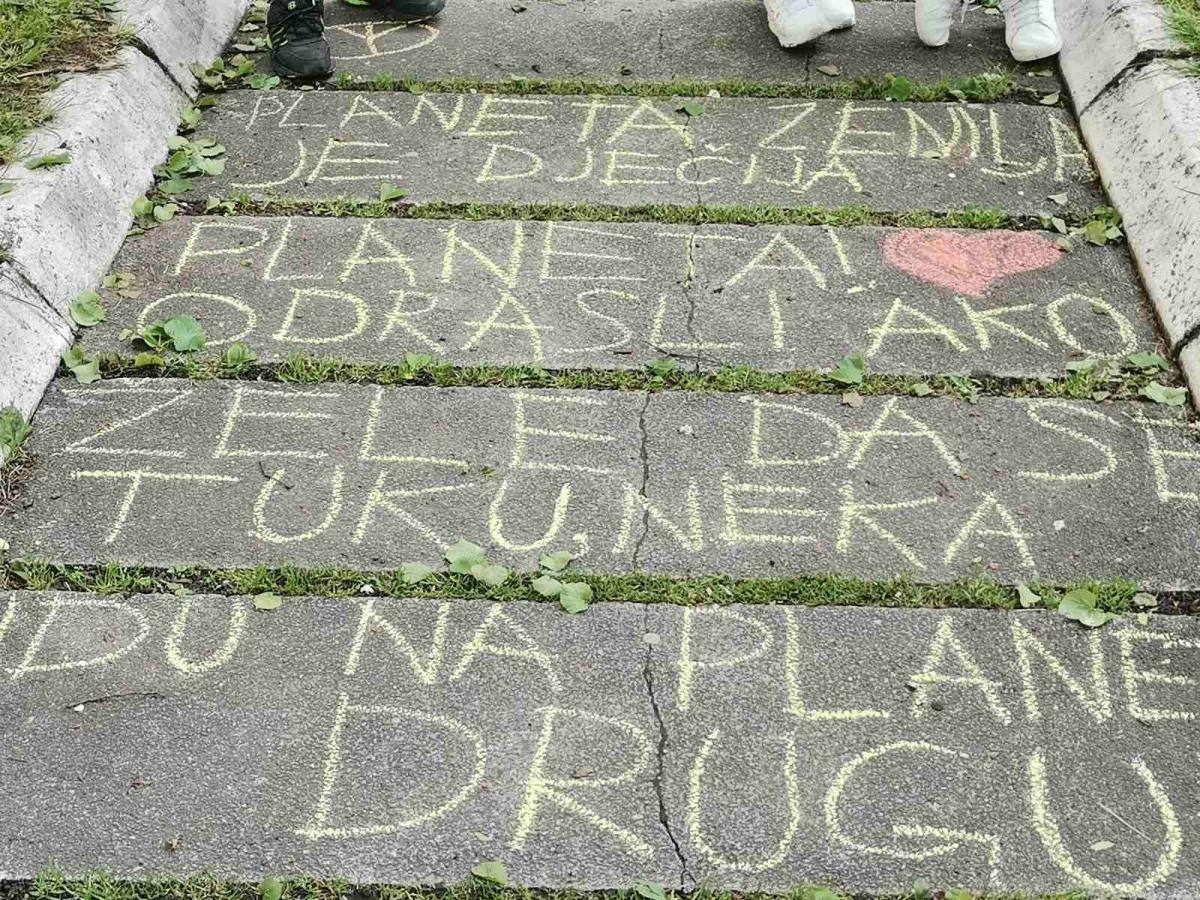 PLANETA ZEMLJA
JE DJEČIJA
PLANETA!
ODRASLI AKO
ZELE DA SE
TUKU, NEKA
IDU NA PLANE
DRUGU